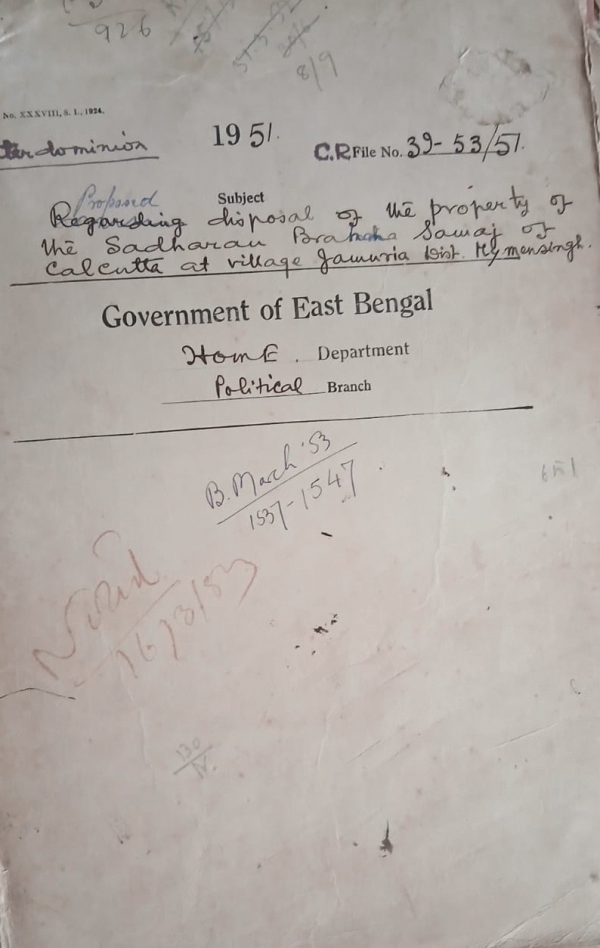 926
8/9
No. XXXVIII, S. I., 1924.
ter dominion
1951.
C.R File No. 39-53/51.
Subject
Proposed
Regarding disposal of the property of
the Sadharan Brahma Samaj of
Calcutta at village Jamuria Dist. Mymensingh.
Government of East Bengal
HomE. Department
Political Branch
B. March '53
1537-1547
16/3/53
130
N.